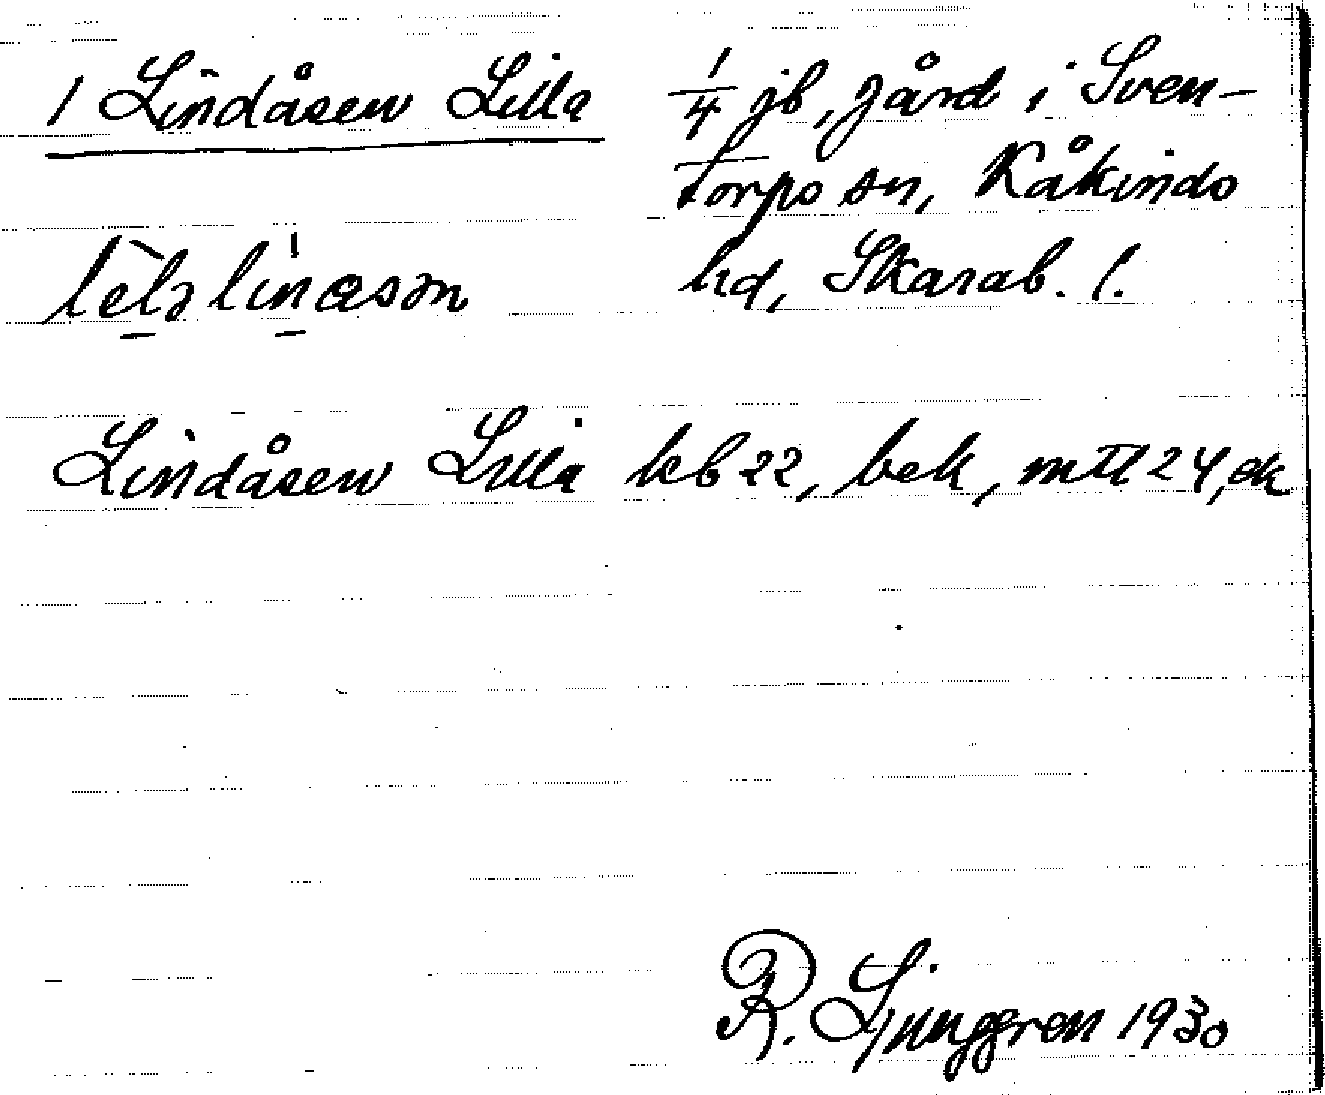 1 Lindåsen Lilla 1/4 jb, gård i Sven-
torps sn, Kåkinds
hd, Skarab. l.
Lindåsen Lilla kb 22, bek, mtl 24, ek
R. Ljunggren 1930